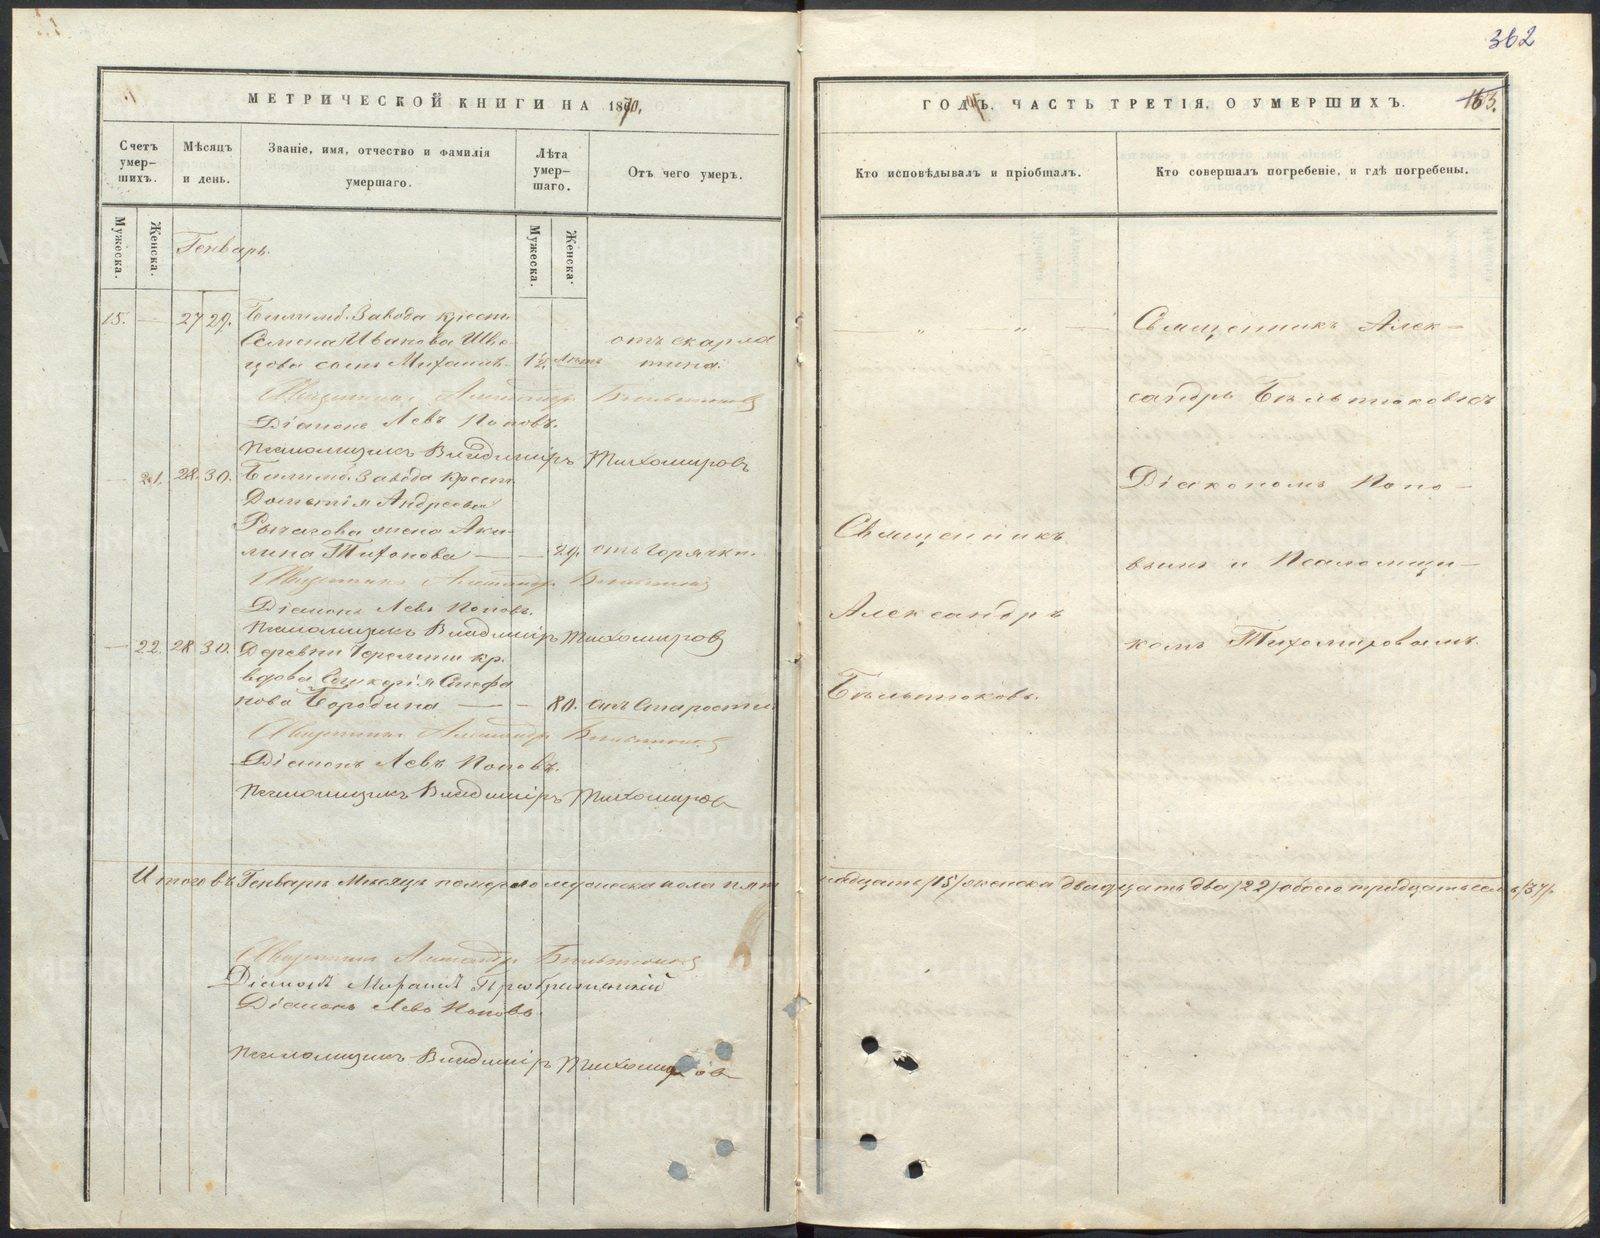 362
МЕТРИЧЕСКОЙ КНИГИ НА 1870,
Счетъ умер-шихъ.
Мѣсяцъ и день.
Званіе, имя, отчество и фамилія умершаго.
Лѣта умер-шаго.
Отъ чего умеръ.
Мужеска.
Женска.
Генварь.
Мужеска.
Женска
15. — 27 29. Билимб. Завода крест.
Семена Иванова Шве-
цова сынъ Михаилъ. 1½ лѣтъ
отъ скарла
тина.
Священникъ Александръ Бѣльтюковъ
Діаконъ Левъ Поповъ.
Псаломщикъ Владиміръ Тихомировъ
— 21. 28. 30. Билимб. Завода крест.
Андреева
Рычагова жена Аку-
лина Тихонова — — 29. отъ горячки.
Священникъ Александръ Бѣльтюковъ
Діаконъ Левъ Поповъ.
Псаломщикъ Владиміръ Тихомировъ
— 22. 28 30. Деревни кр.
вдова Стефа
нова Бородина — — 80. отъ старости.
Священникъ Александръ Бѣльтюковъ
Діаконъ Левъ Поповъ.
Псаломщикъ Владиміръ Тихомировъ
Итого въ Генварѣ Мѣсяцѣ померло мужеска пола пят
Священникъ Александръ Бѣльтюковъ
Діаконъ Преображенскій
Діаконъ Левъ Поповъ.
Псаломщикъ Владиміръ Тихомировъ
ГОДЪ. ЧАСТЬ ТРЕТІЯ, О УМЕРШИХЪ.
163.
Кто исповѣдывалъ и пріобщалъ.
Кто совершалъ погребеніе, и гдѣ погребены.
— „ — „ —
Священникъ
Александръ
Бѣльтюковъ.
Священникъ Алек-
сандръ Бѣльтюковъ съ
Діакономъ Попо-
вымъ и Псаломщи-
комъ Тихомировымъ.
надцать /15/ женска двадцать два /22/ обоего тридцать семь /37/.